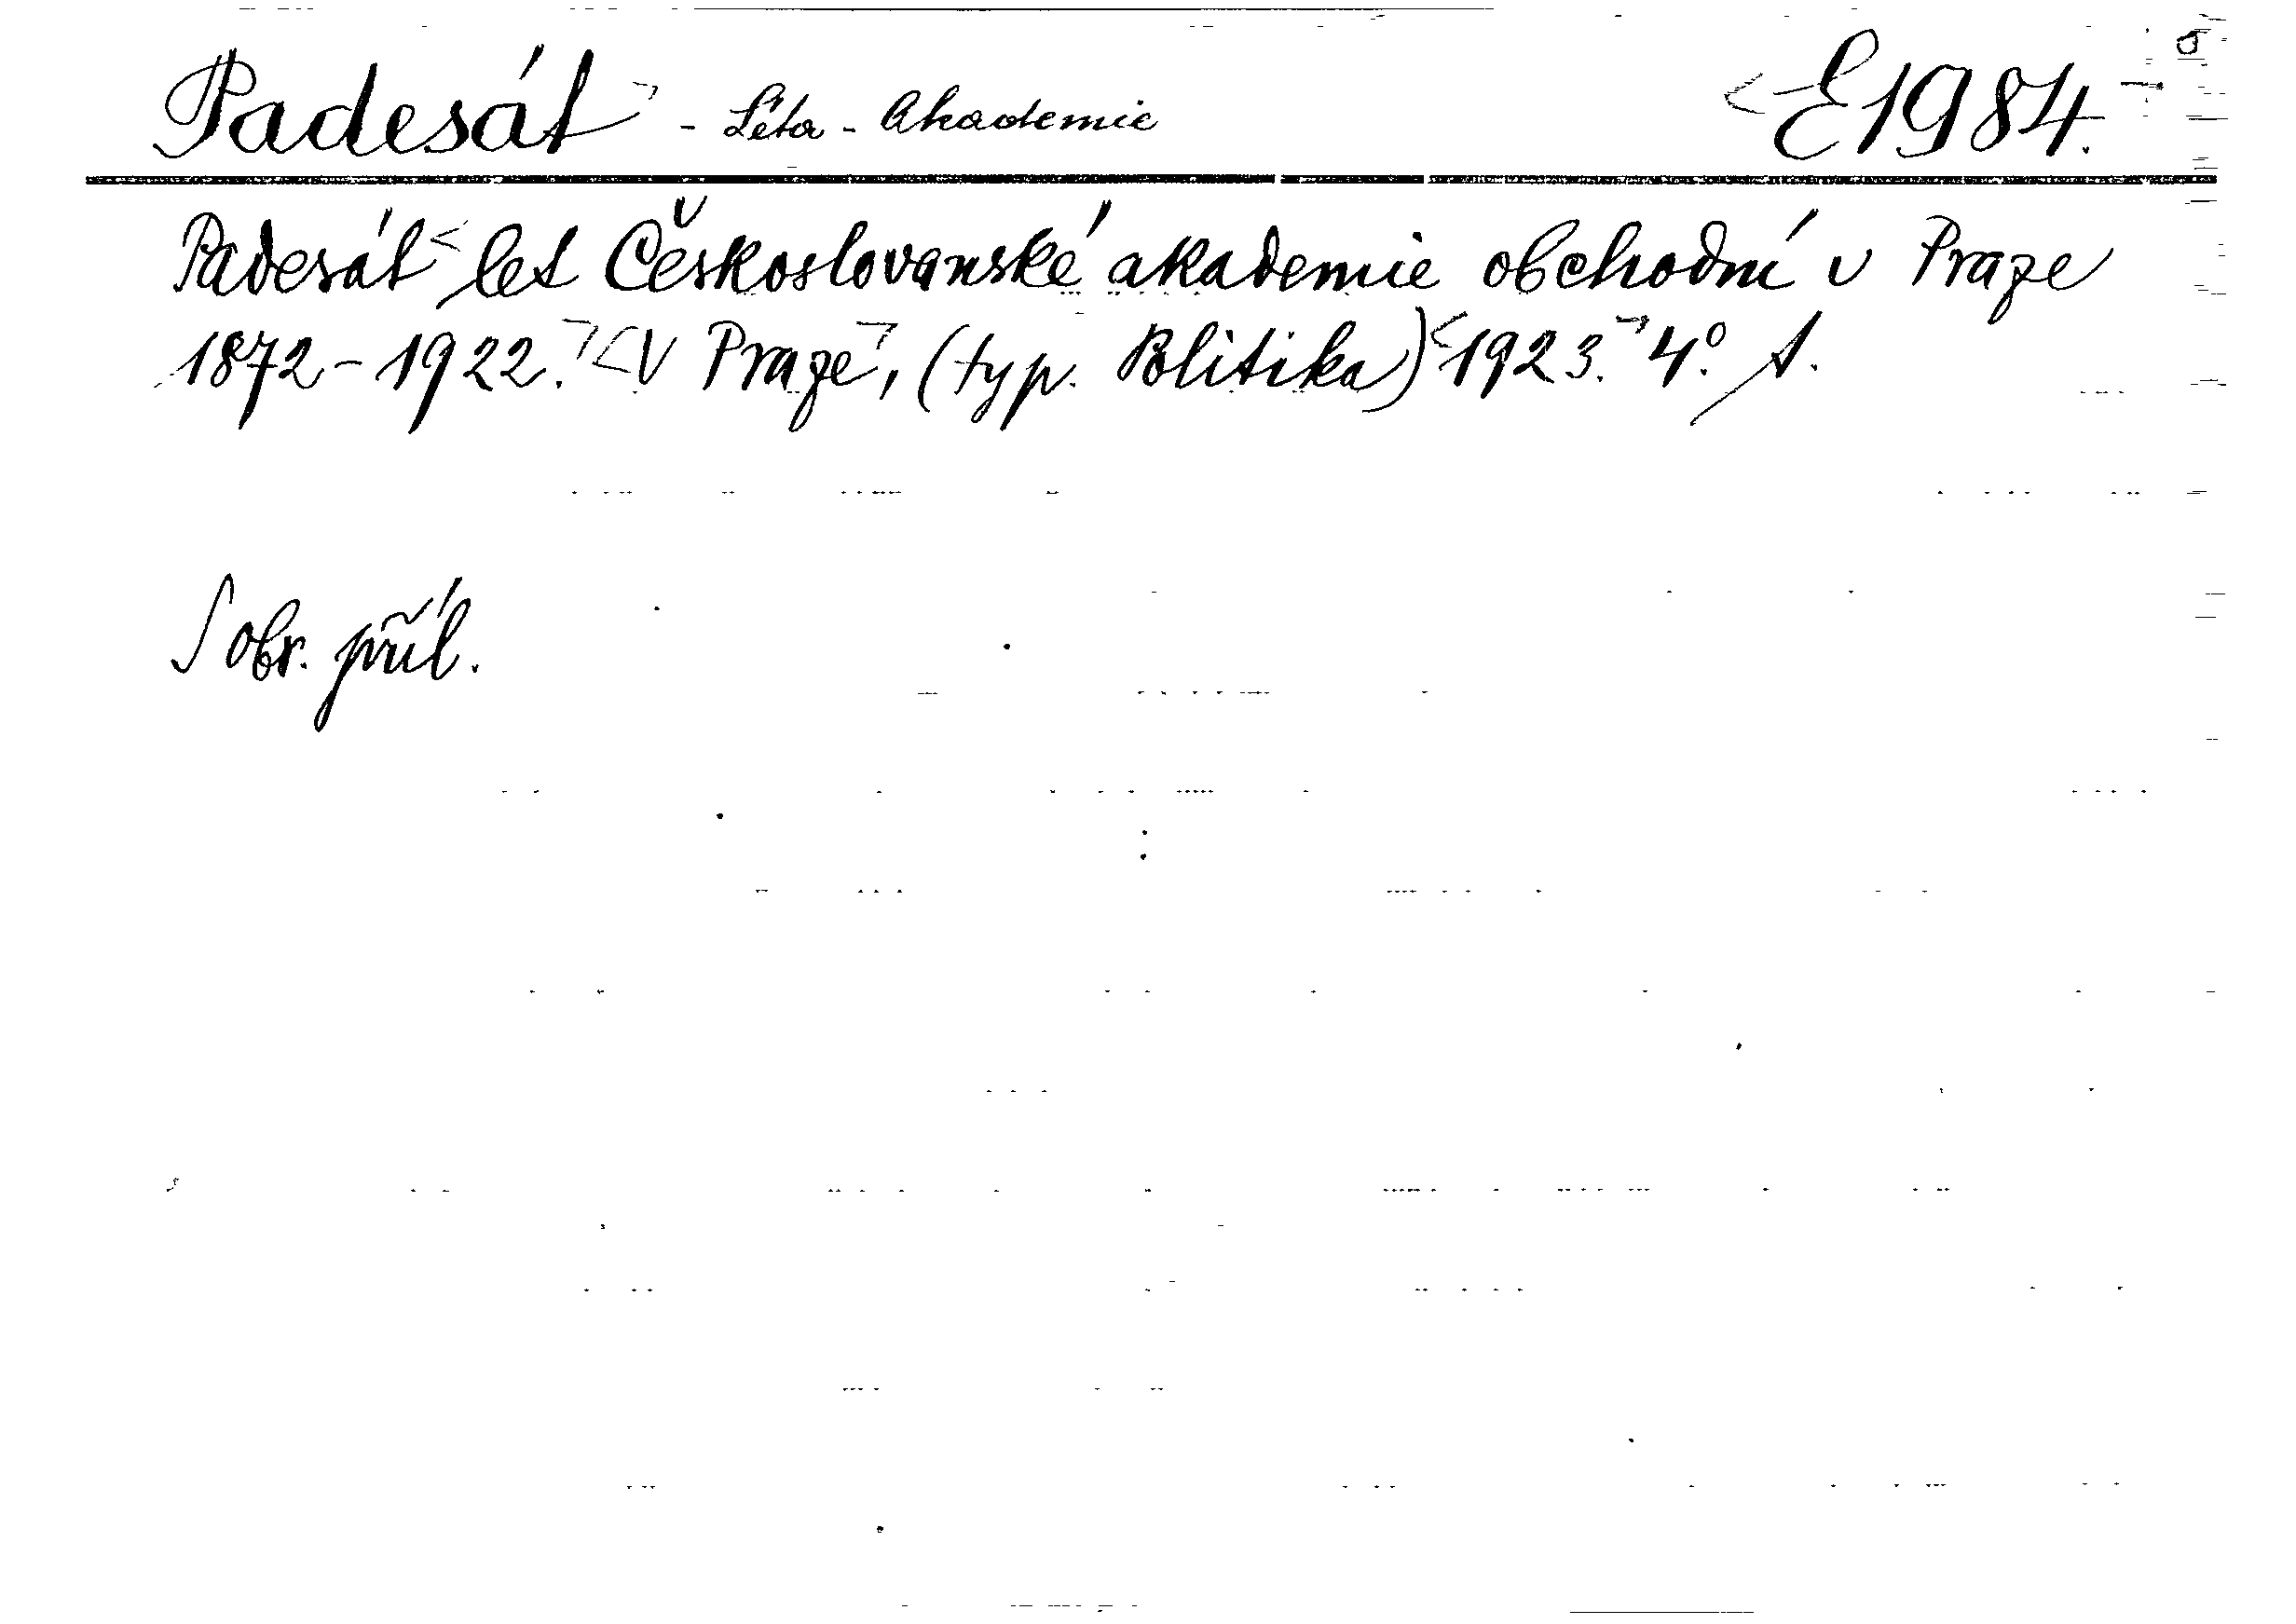 Padesát - Léta - Akademie E 1984.
Padesát let Českoslovanské akademie obchodní v Praze
1872-1922. V Praze, (typ. Politika) 1923. 4°. s.
S obr. příl.